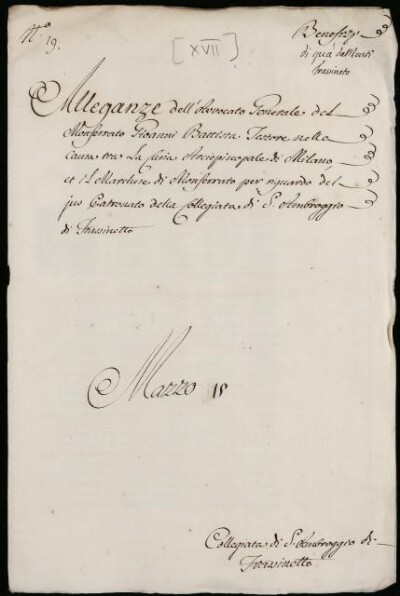 N.o 19.
[XVII]
Benefizj
di quà da Monti
Frassineto
Alleganze dell'Avocato Generale del
Monferrato Gioanni Battista Tessore nella
Causa tra La Curia Arcivpiscopale di Milano,
et il Marchese di Monferrato per riguardo del
jus Patronato della Collegiata di S. Ambroggio
di Frassinetto
Mazzo 15
Collegiata di S. Ambroggio di
Frassinetto